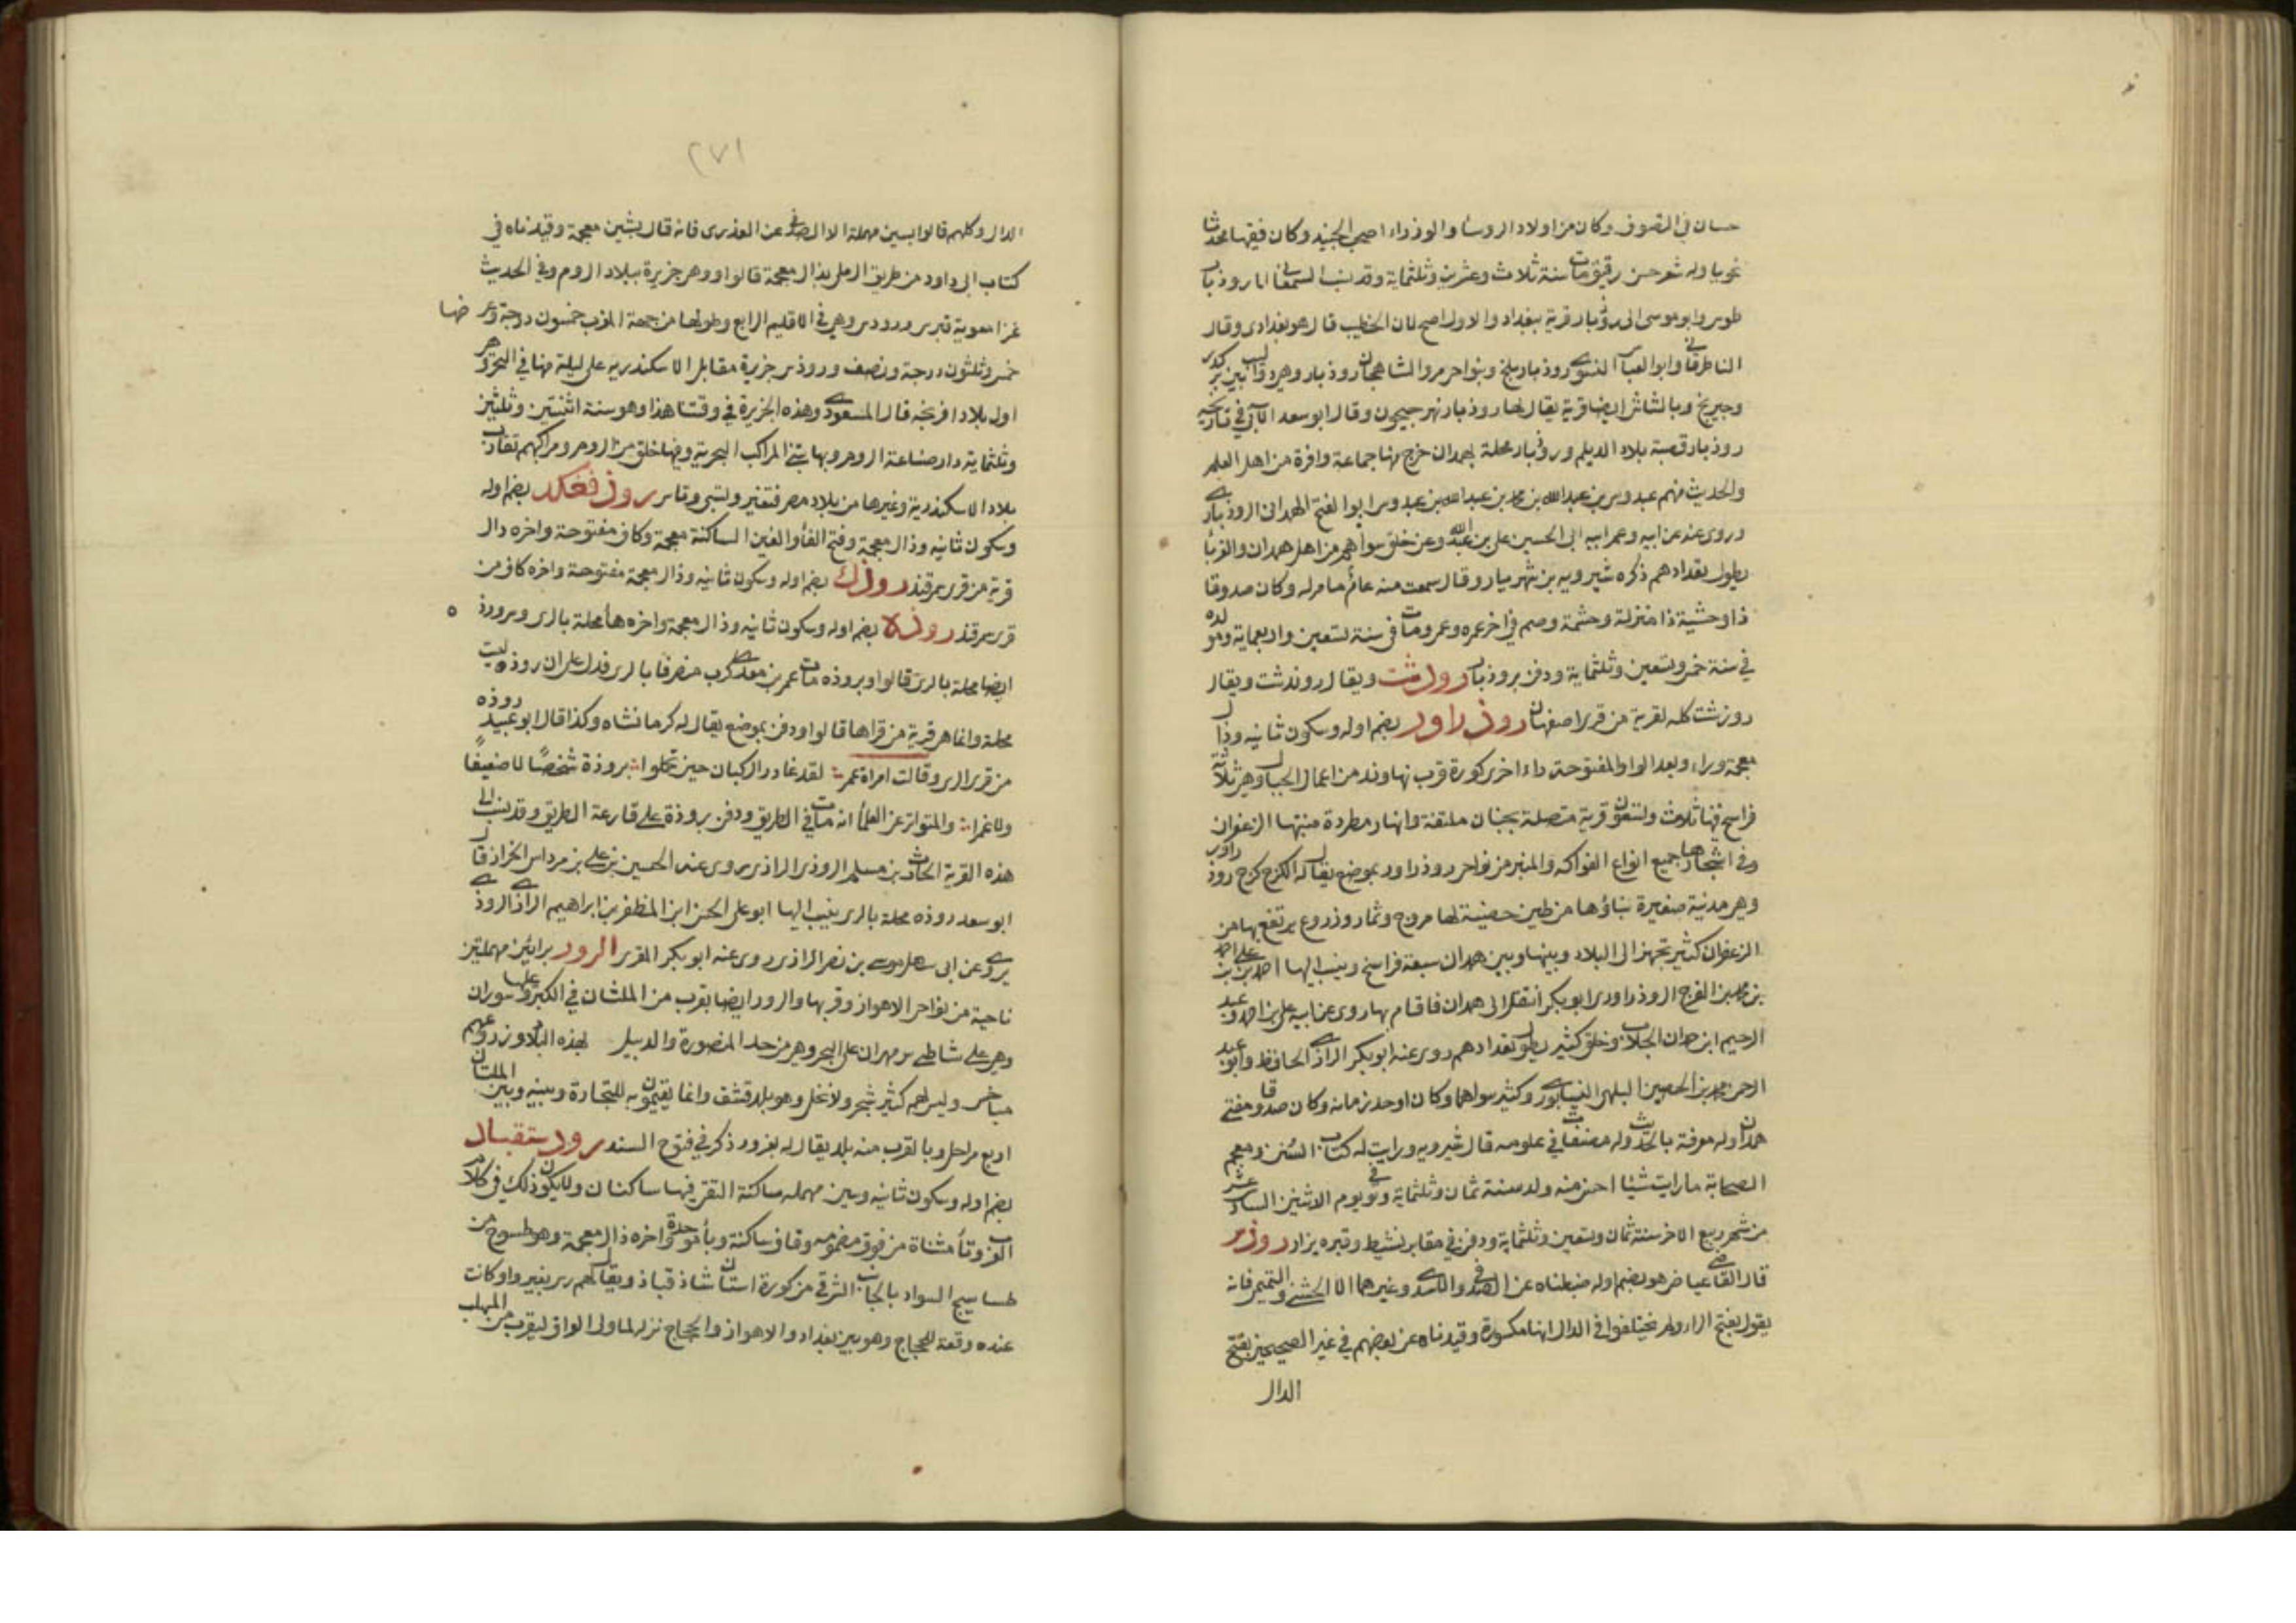 حسان في التصوف وكان من اولاد الروسا والوزراء صحب الجنيد وكان فقيها محدثا
نحويا وله شعر حسن رقيق مات سنة ثلاث وعشرين وثلثماية وقد نسب السمعاني ابا روذبار
طوس وابو موسى الى روذبار قرية ببغداد والاول اصح لان الخطيب قال هو بغدادي وقال
الناطرقاني وابو العباس النسوي روذبار بلخ وبنواحي مرو الشاهجان روذبار وهي دواليب بين بركدر
وجيرنج وبالشاش ايضا قرية يقال لها روذبار نهر جيحون وقال ابو سعد الآبي في تاريخه
روذبار قصبة بلاد الديلم وروذبار محلة بهمدان خرج منها جماعة وافرة من اهل العلم
والحديث منهم عبدوس بن عبدالله بن محمد بن عبدالله بن عبدوس ابوا الفتح الهمداني الروذباري
وروى عنه عن ابيه وعم ابيه ابي الحسين علي بن عبد الله وعن خلق سواهم من اهل همدان والغربا
يطول تعدادهم ذكره شيرويه بن شهريار وقال سمعت منه عامة ما مر له وكان صدوقا
ذا وحشية ذا منزلة وحشمة وصم في اخر عمره وعمر ومات في سنة تسعين واربعماية ومولده
في سنة خمس وتسعين وثلثماية ودفن بروذبار رودشت ويقال روندشت ويقال
روزشت كله لقرية من قرى اصفهان روذراور بضم اوله وسكون ثانيه وذال
معجمة وراء وبعد الواو المفتوحة راء اخرى كورة قرب نهاوند من اعمال الجبال وهي ثلاثة
فراسخ فيها ثلاث وتسعون قرية متصلة بجنان ملتفة وانهار مطردة منبتها الزعفران
وفي اشجارها جميع انواع الفواكه والمنبر من نواحي روذراور بموضع يقال له الكرج كرج روذراور
وهي مدينة صغيرة بناؤها من طين حصينة لها مروج وثمار وزروع يرتفع بها من
الزعفران كثير تجهز الى البلاد وبينها وبين همدان سبعة فراسخ وينسب اليها احمد بن علي بن احمد
بن محمد بن الفرج الروذراوري ابو بكر انتقل الى همدان فاقام بها روى عن ابيه علي بن احمد وعبد
الرحيم ابن حمدان الجلاب وخلق كثير يطول تعدادهم روى عنه ابو بكر الرازي الحافظ وابو عبد
الرحمن محمد بن الحسين السلمي النيسابوري وكثير سواهما وكان اوحد زمانه وكان صدوقا مفتي
همدان وله معرفة بالحديث وله مصنفات في علومه قال شيرويه ورايت له كتاب السنن ومعجم
الصحابة ما رايت شيئا احسن منه ولد سنة ثمان وثلثماية وتوفي يوم الاثنين السادس عشر
من شهر ربيع الاخر سنة ثمان وتسعين وثلثماية ودفن في مقابر نشيط وقبره يزار رودس
قال القاضي عياض هو بضم اوله ضبطناه عن الصدفي والاسدي وغيرهما الا الخشني والتميمي فانه
يقول بفتح الراء ولم يختلفوا في الدال انها مكسورة وقيدناه عن بعضهم في غير الصحيحين بفتح
الدال
٢٧١
الدال وكلهم قالوا بسين مهملة الا الصدفي عن العذري فانه قال بشين معجمة وقيدناه في
كتاب ابي داود من طريق الرملي بذال معجمة قالوا وهي جزيرة ببلاد الروم وفي الحديث
غزا معوية قبرس ورودس وهي في الاقليم الرابع وطولها من جهة المغرب خمسون درجة وعرضها
خمس وثلثون درجة ونصف ورودس جزيرة مقابل الاسكندرية على ليلة منها في البحر وهي
اول بلاد افرنجه قال المسعودي وهذه الجزيرة في وقتنا هذا وهو سنة اثنتين وثلثين
وثلثماية دار صناعة الروم وبها تبنى المراكب البحرية وفيها خلق من الروم ومراكبهم تقارب
بلاد الاسكندرية وغيرها من بلاد مصر فتغير وتسبي وتاسر روذفغكد بضم اوله
وسكون ثانيه وذال معجمة وفتح الفاء والغين الساكنة معجمة وكاف مفتوحة واخره دال
قرية من قرى سمرقند روذك بضم اوله وسكون ثانيه وذال معجمة مفتوحة واخره كاف من
قرى سمرقند روذه بضم اوله وسكون ثانيه وذال معجمة واخره هاء محلة بالري وسروذ
ايضا محلة بالري قالوا وبروذه مات عمر بن معدي كرب منصرفا بالري فدل على ان روذه ليست
محلة وانما هي قرية من قراها قالوا ودفن بموضع يقال له كرمانشاه وكذا قال ابو عبيد روذه
من قرى الري وقالت امراة عمر لقد غادر الركبان حين تحملوا بروذة شخصا لا ضعيفا
ولا غمرا والمتواتر عن العلما انه مات في الطريق ودفن بروذة على قارعة الطريق وقد نسب الى
هذه القرية الحارث بن مسلم الروذي الرازي روى عنه الحسين بن علي بن مرداس الخزاز قال
ابو سعد روذه محلة بالري ينسب اليها ابو علي الحسن ابن المظفر بن ابراهيم الرازي الروذي
يروي عن ابي سهل موسى بن نصر الرازي روى عنه ابو بكر المقري الرور برائين مهملتين
ناحية من نواحي الاهواز وقربها والرور ايضا بقرب من الملتان في الكبر وعليها سوران
وهي على شاطي نهر مهران على البحر وهي من حد المنصورة والديبل لهذه البلاد وزروعهم
مباخس وليس لهم كثير شجر ولا نخل وهو بلد قشف وانما يقيمون به للتجارة وبينه وبين الملتان
اربع مراحل وبالقرب منه بلد يقال له بغرور ذكر في فتوح السند روستقباذ
بضم اوله وسكون ثانيه وسين مهمله ساكنة التقى فيها ساكنان ولا يكون ذلك في كلام
العرب وتاء مثناة من فوق مضمومه وقاف ساكنة وباء موحدة واخره ذال معجمة وهو طسوج من
طساسيج السواد بالجانب الشرقي من كورة استان شاذ قباذ ويقال لهم رس بغير واو كانت
عنده وقعة للحجاج وهو بين بغداد والاهواز والحجاج نزله لما ولي العراق ليقرب من المهلب